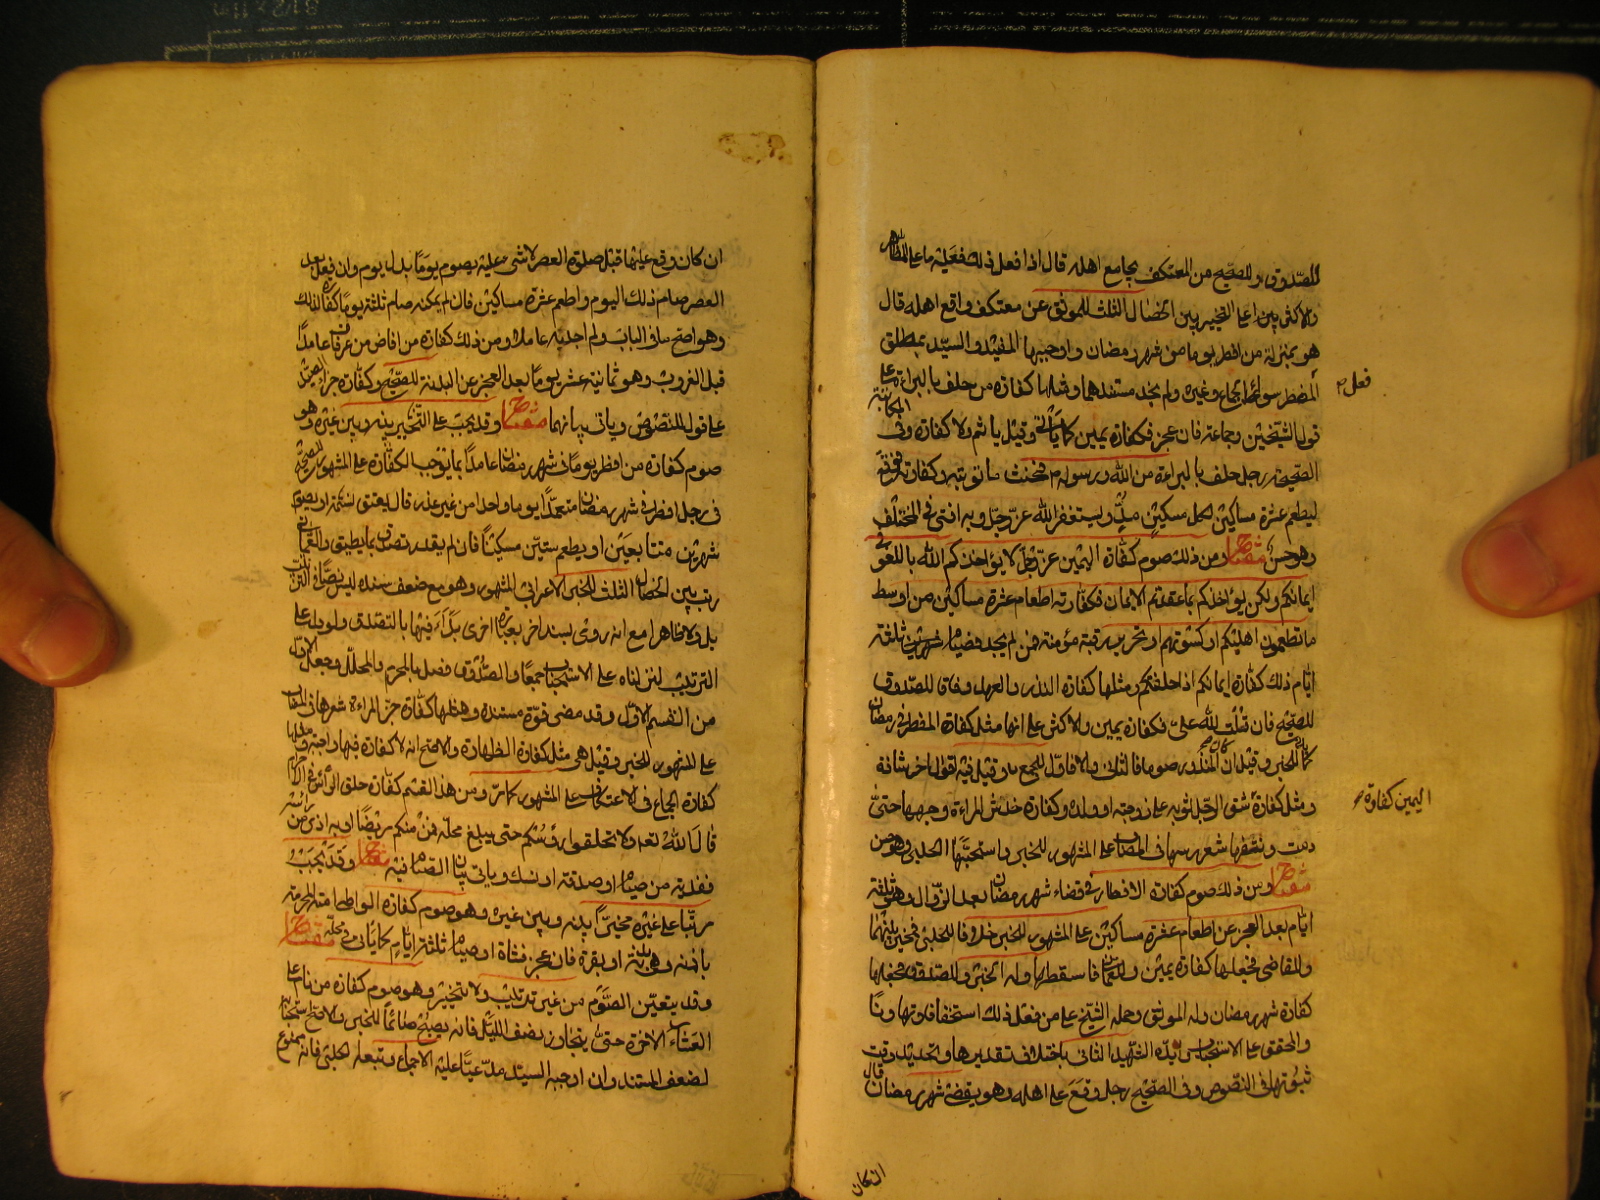 للصدوق وللصحيح من المعتكف يجامع اهله قال اذا فعل ذلك فعليه ما على المظاهر
والاكثرين على التخيير بين الخصال الثلث للموثق عن معتكف واقع اهله قال
هو بمنزلة من افطر يوما من شهر رمضان واوجبها المفيد والسيد بمطلق
المفطر سواء الجماع وغيره ولم نجد مستندهما ومثلها كفارة من حلف بالبراءة على
فعل
قول الشيخين وجماعة فان عجز فكفارة يمين كما ياتي وقيل ياثم ولا كفارة وفي المكاتبة
الصحيحة رجل حلف بالبراءة من الله ورسوله ص فحنث ما توبته وكفارته فوقع
ليطعم عشرة مساكين لكل مسكين مد ويستغفر الله عز وجل وبه افتى في المختلف
وهو حسن مفتاح ومن ذلك صوم كفارة اليمين عز وجل لا يؤاخذكم الله باللغو في
ايمانكم ولكن يؤاخذكم بما عقدتم الايمان فكفارته اطعام عشرة مساكين من اوسط
ما تطعمون اهليكم او كسوتهم او تحرير رقبة مؤمنة فمن لم يجد فصيام ثلثة
ايام ذلك كفارة ايمانكم اذا حلفتم ومثلها كفارة النذر والعهد وفاقا للصدوق
للصحيح فان قلت لله علي فكفارة يمين والاكثر على انها مثل كفارة المفطر في رمضان
للخبر وقيل ان كان المنذور صوما فالثاني والا فالاول للجمع وقيل فيه اقوال اخر شاذة
ومثل كفارة شق الرجل ثوبه على زوجته او ولده وكفارة خدش المراءة وجهها حتى
اليمين كفارة
دمت ونتفها شعر راسها في المصاب على المشهور للخبر واستحبها الحلي وهو حسن
مفتاح ومن ذلك صوم كفارة الافطار في قضاء شهر رمضان بعد الزوال وهو ثلثة
ايام بعد العجز عن اطعام عشرة مساكين على المشهور للخبر خلافا للحلبي فخير بينهما
والقاضي فجعلها كفارة يمين وللعماني فاسقطها وله الخبر وللصدوق فجعلها
كفارة شهر رمضان وله الموثق وحمله الشيخ على من فعل ذلك استخفافا وتهاونا
والمحقق على الاستحباب وايده الشهيد الثاني باختلاف تقديرها وتحديد وقت
ثبوتها في النصوص وفي الصحيح رجل وقع على اهله وهو يقضي شهر رمضان قال
ان كان
ان كان وقع عليها قبل صلوة العصر لا شيء عليه يصوم يوما بدل يوم وان فعل بعد
العصر صام ذلك اليوم واطعم عشرة مساكين فان لم يمكنه صام ثلثة يوما كفارة لذلك
وهو اصح ما في الباب ولم اجد به عاملا ومن ذلك كفارة من افاض من عرفات عامدا
قبل الغروب وهو ثمانية عشر يوما بعد العجز عن البدنة للصحيح وكفارة جزاء الصيد
على قول للنصوص وياتي بيانها مفتاح وقد يجب على التخيير بينه وبين غيره وهو
صوم كفارة من افطر يوما في شهر رمضان عامدا بما يوجب الكفارة على المشهور للصحيح
في رجل افطر في شهر رمضان متعمدا يوما واحدا من غير عذر قال يعتق نسمة او يصوم
شهرين متتابعين او يطعم ستين مسكينا فان لم يقدر تصدق بما يطيق والعماني
رتب بين الخصال الثلث للخبر الاعرابي المشهور وهو مع ضعف سنده ليس نصا في الترتيب
بل ولا ظاهرا مع انه روي بسند اخر بعبارة اخرى بدأ فيها بالتصدق ولو دل على
الترتيب لنزلناه على الاستحباب جمعا والصدوق فصل بالمحرم والمحلل وجعل الاول
من القسم الاول وقد مضى قوة مستنده ومثلها كفارة جز المراءة شعرها في المصاب
على المشهور للخبر وقيل هي مثل كفارة الظهار والاصح انه لا كفارة فيها راجحة ومثلها
كفارة الجماع في الاعتكاف على المشهور كما مر ومن هذا القسم كفارة حلق الراس في الاحرام
قال الله تعالى ولا تحلقوا رؤسكم حتى يبلغ الهدي محله فمن كان منكم مريضا او به اذى من راسه
ففدية من صيام او صدقة او نسك وياتي بيان الصيام فيه مفتاح وقد يجب
مرتبا على غيره مخيرا بينه وبين غيره وهو صوم كفارة الواطي امته المحرمة
باذنه وهي بدنة او بقرة فان عجز فشاة او صيام ثلثة ايام كما ياتي في محله مفتاح
وقد يتعين الصوم من غير ترتيب ولا تخيير وهو صوم كفارة من نام على
العشاء الاخرة حتى يتجاوز نصف الليل فانه يصبح صائما للخبر والاصح استحبابه
لضعف المستند وان اوجبه السيد مدعيا عليه الاجماع وتبعه الحلي فانه ممنوع